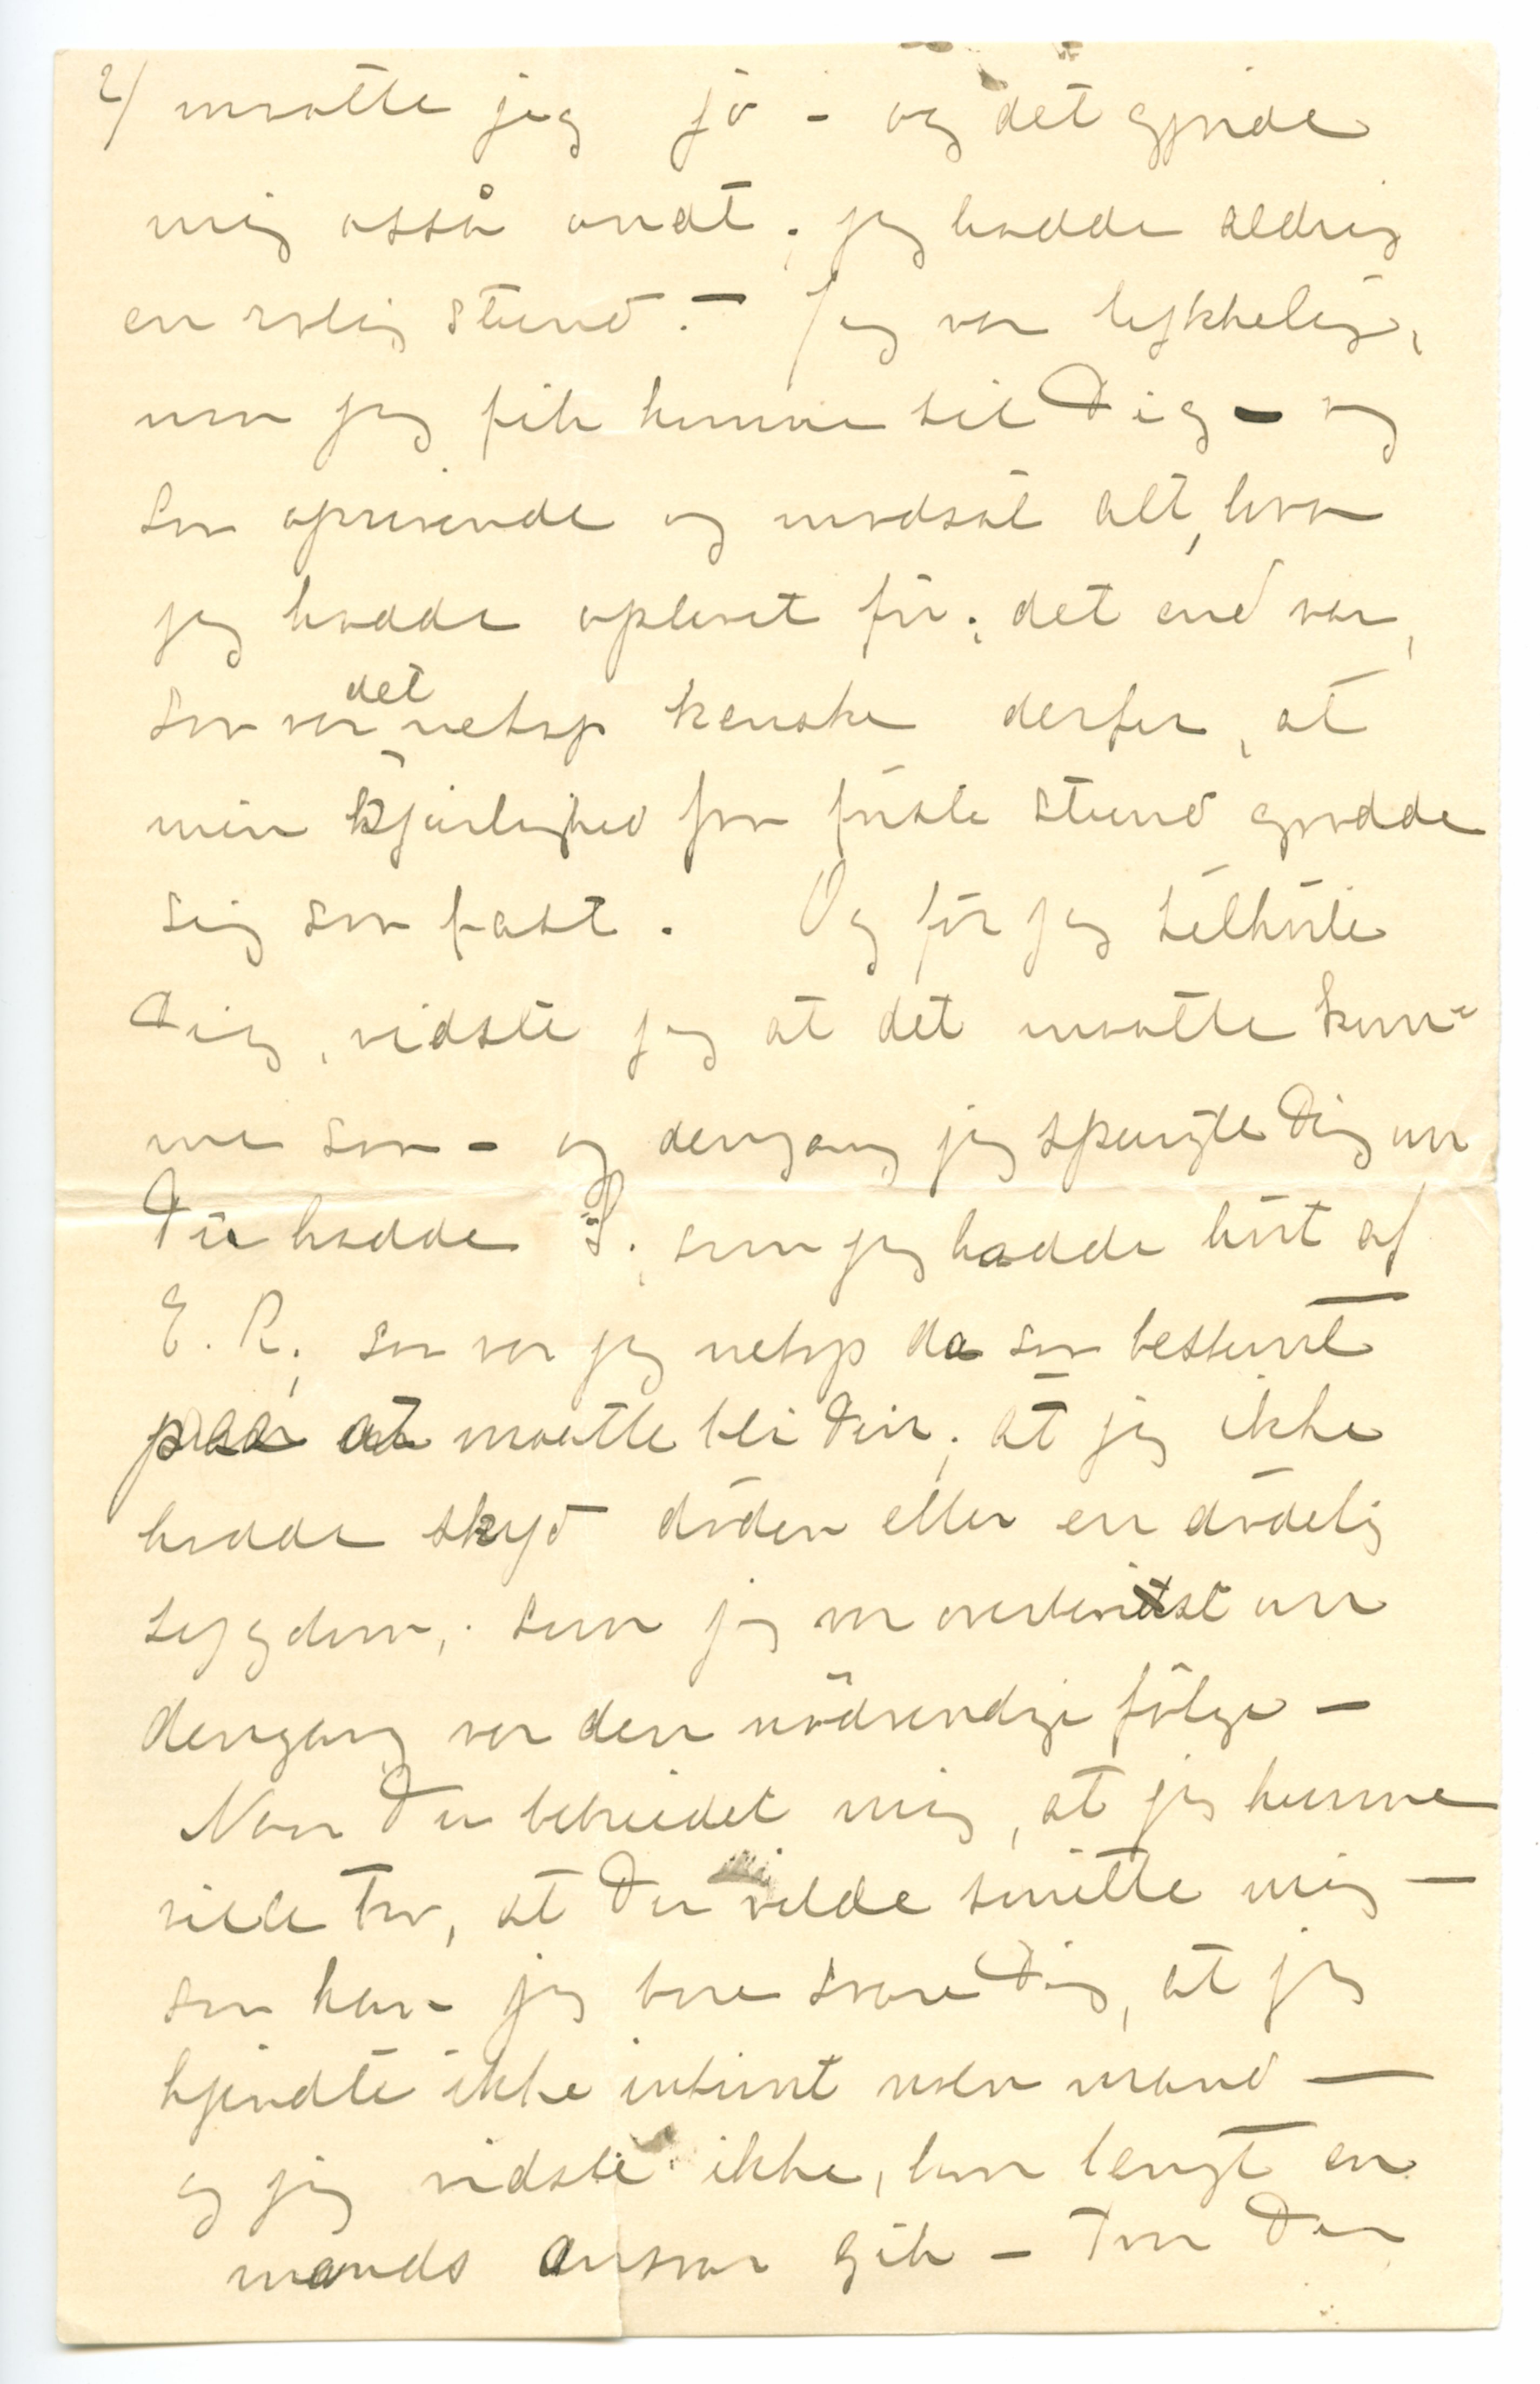 2/ maatte jeg jo - og det gjorde
mig osså ondt; jeg hadde aldrig
en rolig stund. - Jeg var lykkelig,
naar jeg fik komme til Dig - og
saa oprivende og modsat alt, hva
jeg hadde oplevet för; det end var,
saa var det netop kanske derfor, at
min kjærlighed fra förste stund grodde
sig saa fast. Og för jeg tilhörte
Dig, vidste jeg at det maatte kom-
me saa - og dengang jeg spurgte Dig om
Du hadde S., som jeg hadde hört af
E. R., saa var jeg netop da saa bestemt
paa at maatte bli Din; at jeg ikke
hadde skyd döden eller en dödelig
sygdom, som jeg var overbevist om
dengang var den nödvendige fölge -
Naar Du bebreidet mig, at jeg kunne
ville tro, at Du vilde smitte mig -
saa kan jeg bare svare Dig, at jeg
kjendte ikke intimt noen mand -
og jeg vidste ikke, hvor langt en
mands ansvar gik - Tror Du